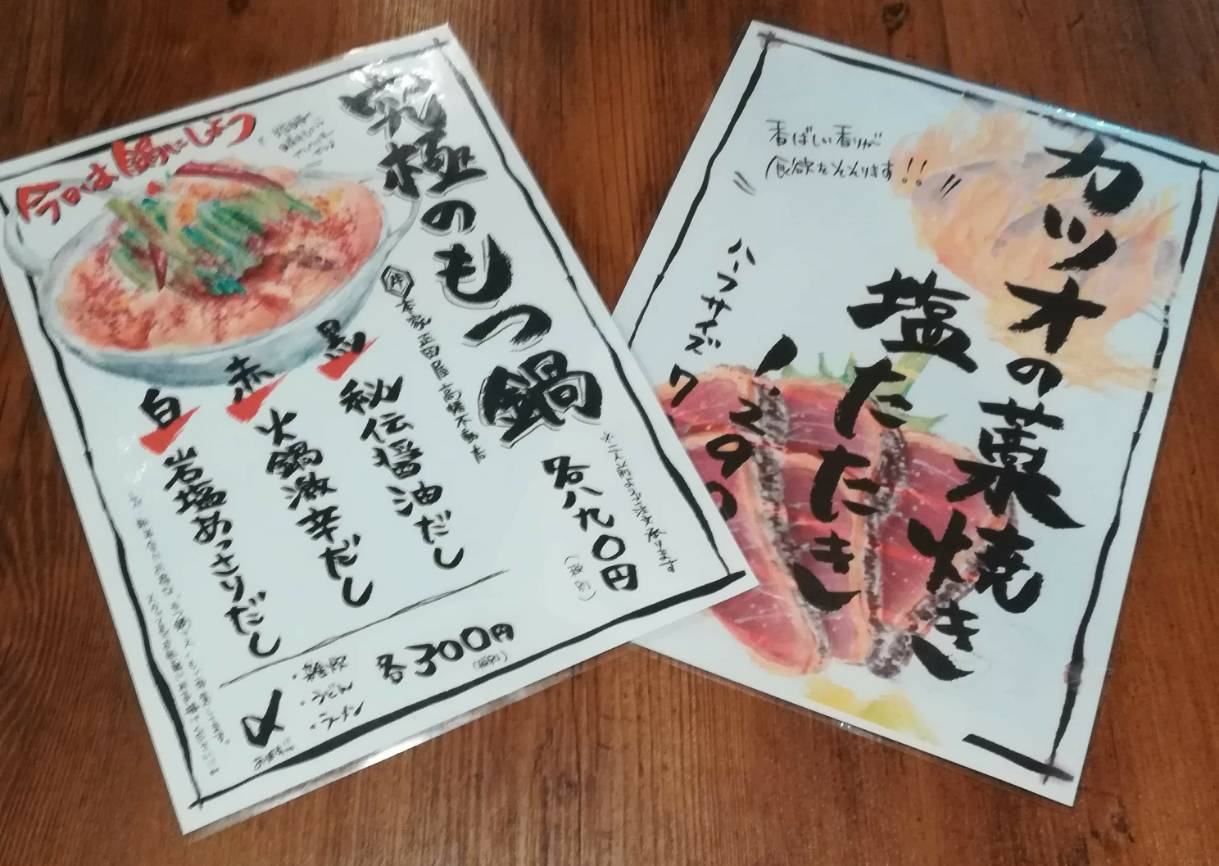 今日は鍋にしよう
究極のもつ鍋
各八九〇円
(税別)
※二人前よりご注文承ります
黒
秘伝醤油だし
赤
火鍋激辛だし
白
岩塩あっさりだし
〆
・雑炊
・うどん
・ラーメン
各300円
(税別)
カツオの藁焼き
塩たたき
1,290
ハーフサイズ 7
香ばしい香りが
食欲をそそります!!